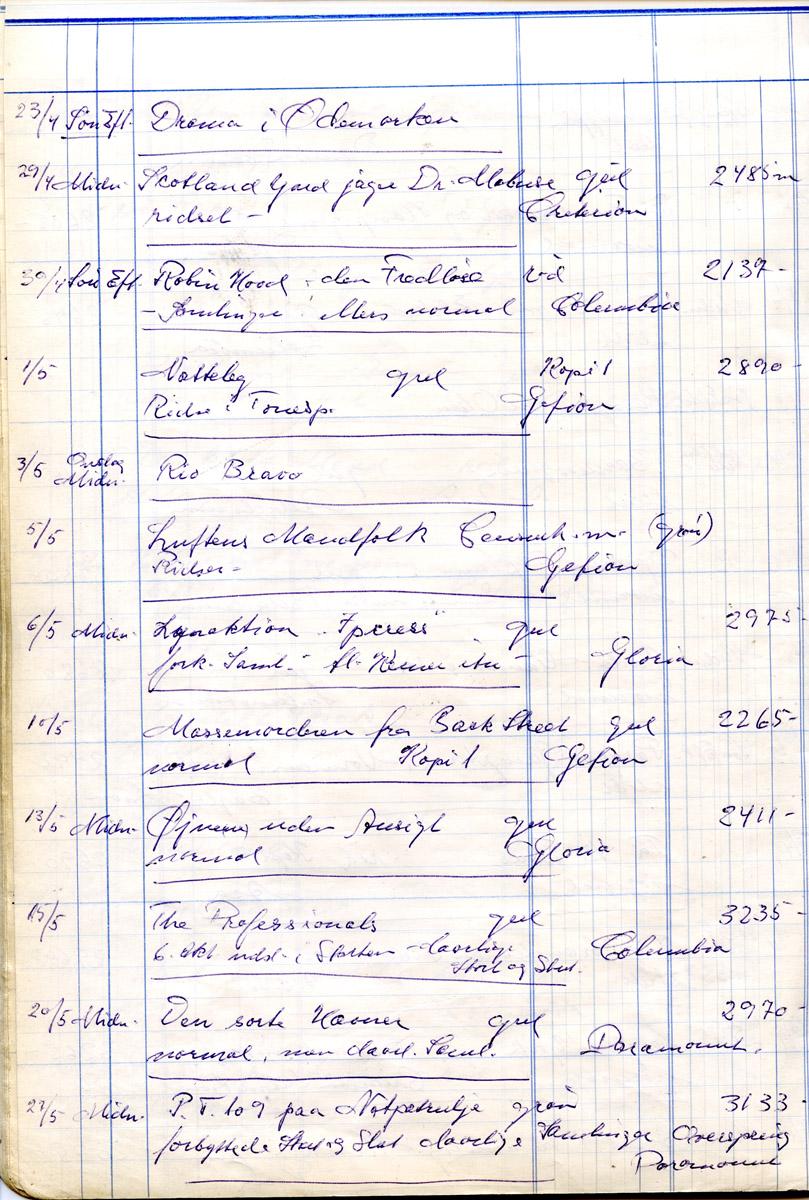 23/4 Søn Eft. Drama i Ødemarken
29/4 Midn. Scotland Yard jager Dr. Mabuse gul 2485 m
ridset - Criterion
30/4 Søn Eft. Robin Hood den Fredløse rød 2137 -
- Samlinger ellers normal Columbia
1/5 Natteleg gul Kopi 1 2890 -
Ridse i Gefion
3/5 Onsdag Midn. Rio Bravo
5/5 Luftens Mandfolk (grøn)
Ridser - Gefion
6/5 Midn. Lynaktion "Ipcress" gul 2975 -
fork. Saml. - Gloria
10/5 Massemorderen fra Back Street gul 2265 -
normal Kopi 1 Gefion
13/5 Midn. Øjnene uden Ansigt gul 2411 -
normal Gloria
15/5 The Professionals gul 3235 -
6. Akt i Starten - daarlige Start og Slut. Columbia
20/5 Midn. gul 2970 -
Den sorte Havner
normal, men daarl. Saml. Paramount.
27/5 Midn. P.T. 109 paa Natpatrulje grøn 3133 -
forbyttede Start og Slut daarlige Samlinger Overspring
Paramount